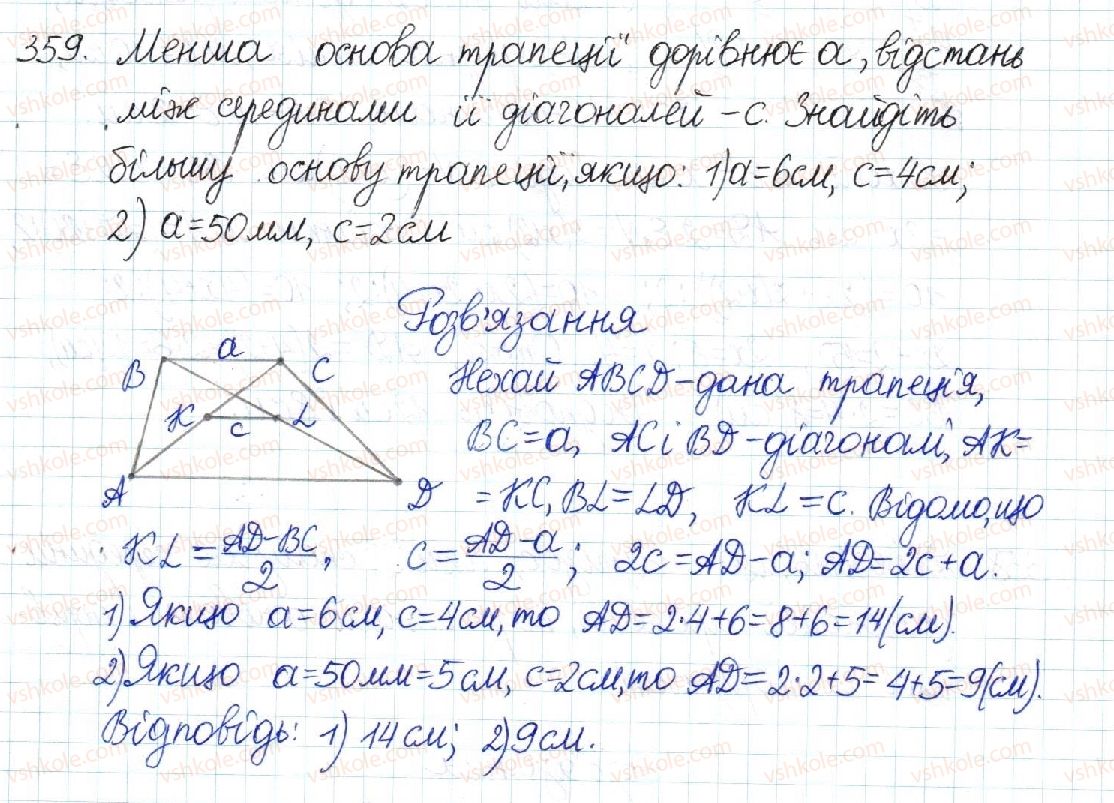 359. Менша основа трапеції дорівнює a, відстань
між серединами її діагоналей – c. Знайдіть
більшу основу трапеції, якщо: 1) a=6см, c=4см;
2) a=50мм, c=2см
Розв'язання
B a C
K c L
A D
Нехай ABCD – дана трапеція,
BC=a, AC і BD – діагоналі, AK=
=KC, BL=LD, KL=c. Відомо, що
KL = AD-BC/2, c = AD-a/2; 2c=AD-a; AD=2c+a.
1) Якщо a=6см, c=4см, то AD=2·4+6=8+6=14(см).
2) Якщо a=50мм=5см, c=2см, то AD=2·2+5=4+5=9(см).
Відповідь: 1) 14см; 2) 9см.
vshkole.com